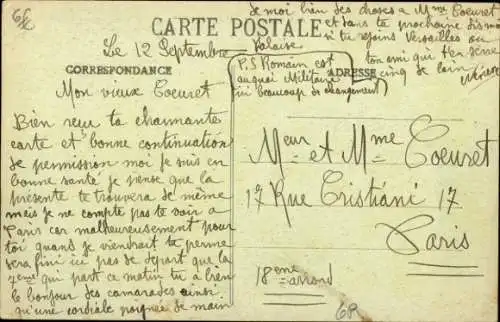 68
de moi bien des choses a Mme Coeuret
CARTE POSTALE et dans ta prochaine dis moi
si tu rejoins Versailles ou
Le 12 Septembre
ton ami qui t'en serre
cinq de loin
CORRESPONDANCE
ADRESSE
P.S Romain est
au quai Militaire
ici beaucoup de changement
Mon vieux Coeuret
Bien reçu ta charmante
carte et bonne continuation
de permission moi je suis en
bonne santé je pense que la
présente te trouvera de même
mais je ne compte pas te voir a
Paris car malheureusement pour
toi quand je viendrait ta perme
sera fini ici pas de départ que la
7eme qui part ce matin tu a bien
le bonjour des camarades ainsi
qu'une cordiale poignée de main
Meur et Mme Coeuret
17 Rue Cristiani 17
Paris
18eme arrond
68